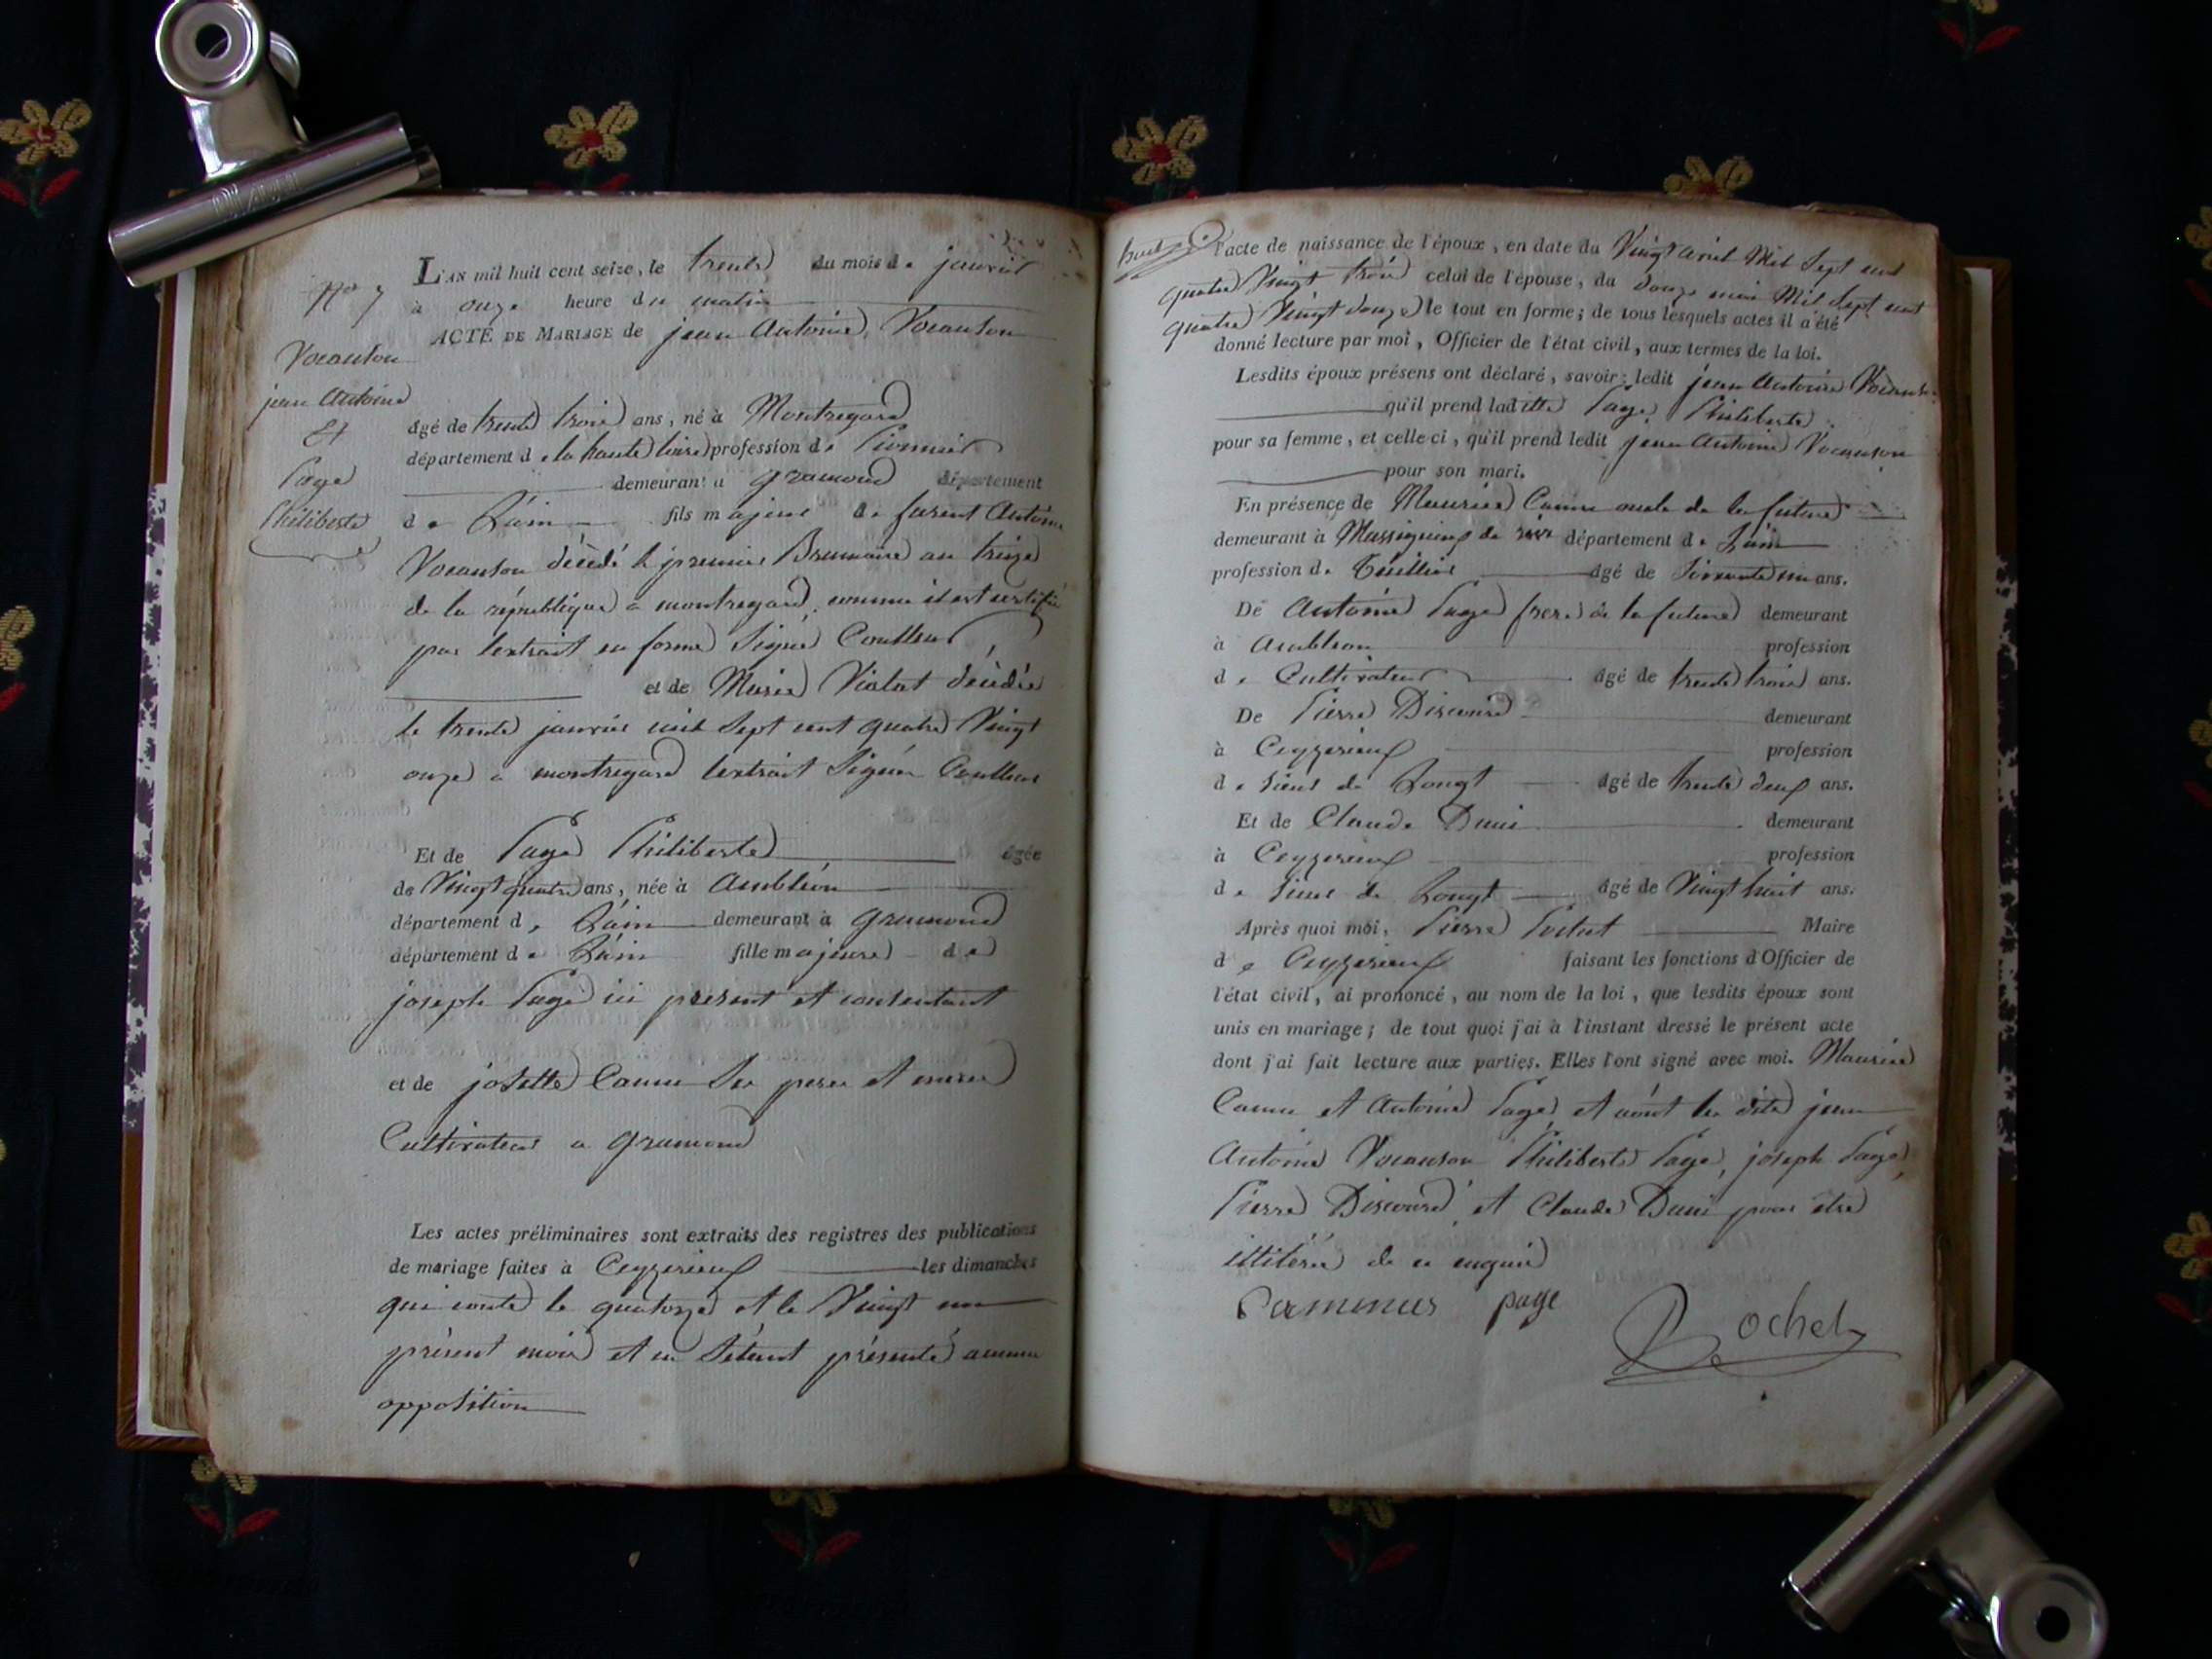 L'AN mil huit cent seize, le trente du mois de janvier
No 7
à onze heure du matin
ACTE DE MARIAGE de jean Antoine Vocanson
Vocanson
jean Antoine
Et
Page
Philiberte
âgé de trente trois ans, né à Montregard
département de la haute loire profession de
demeurant à gramond département
de L'ain fils majeur de furent Antoine
Vocanson décédé le premier Brumaire an treize
de la république a montregard, comme il est certifié
par lextrait en forme Signé Coulleur
et de Marie Vialat décédée
le trente janvier mil Sept cent quatre Vingt
onze a montregard lextrait Signée Coulleur
Et de Page Philiberte âgée
de Vingt quatre ans, née à Ambléon
département de L'ain demeurant à gramond
département de L'ain fille majeure de
joseph Page ici present et consentant
et de josette Camu Ses pere et mere
Cultivateur a gramond
Les actes préliminaires sont extraits des registres des publications
de mariage faites à Ceyzerieux les dimanches
qui conte le quatorze et le Vingt un
présent mois et ne Sétant présenté aucune
opposition
l'acte de naissance de l'époux, en date du Vingt avril Mil Sept cent
quatre Vingt trois celui de l'épouse, du douze mai Mil Sept cent
quatre Vingt douze le tout en forme; de tous lesquels actes il a été
donné lecture par moi, Officier de l'état civil, aux termes de la loi.
Lesdits époux présens ont déclaré, savoir: ledit jean Antoine Vocanson
qu'il prend ladite Page Philiberte
pour sa femme, et celle-ci, qu'il prend ledit jean Antoine Vocanson
pour son mari.
En présence de Maurice Camu oncle de la future
demeurant à Massignieux de rive département de L'ain
profession de âgé de Soixante un ans.
De Antoine Page frere de la future demeurant
à Ambléon profession
de Cultivateur âgé de trente trois ans.
De Pierre demeurant
à Ceyzerieux profession
de âgé de trente deux ans.
Et de Claude demeurant
à Ceyzerieux profession
de âgé de Vingt huit ans.
Après quoi moi, Pierre Maire
de Ceyzerieux faisant les fonctions d'Officier de
l'état civil, ai prononcé, au nom de la loi, que lesdits époux sont
unis en mariage; de tout quoi j'ai à l'instant dressé le présent acte
dont j'ai fait lecture aux parties. Elles l'ont signé avec moi. Maurice
Camu et Antoine Page, et non les dits jean
Antoine Vocanson Philiberte Page, joseph Page,
Pierre et Claude pour etre
illitérés de ce enquis
Cammus page
Bochet